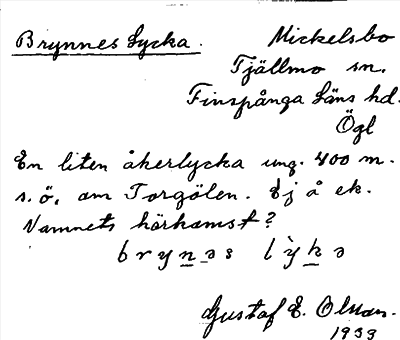 Brynnes Lycka.
Mickelsbo
Tjällmo sn.
Finspånga Läns hd.
Ögl
En liten åkerlycka ung. 400 m.
s. ö. om Torgölen. Ej å ek.
Namnets härkomst?
brynəs lỳkə
Gustaf E. Olsson.
1933